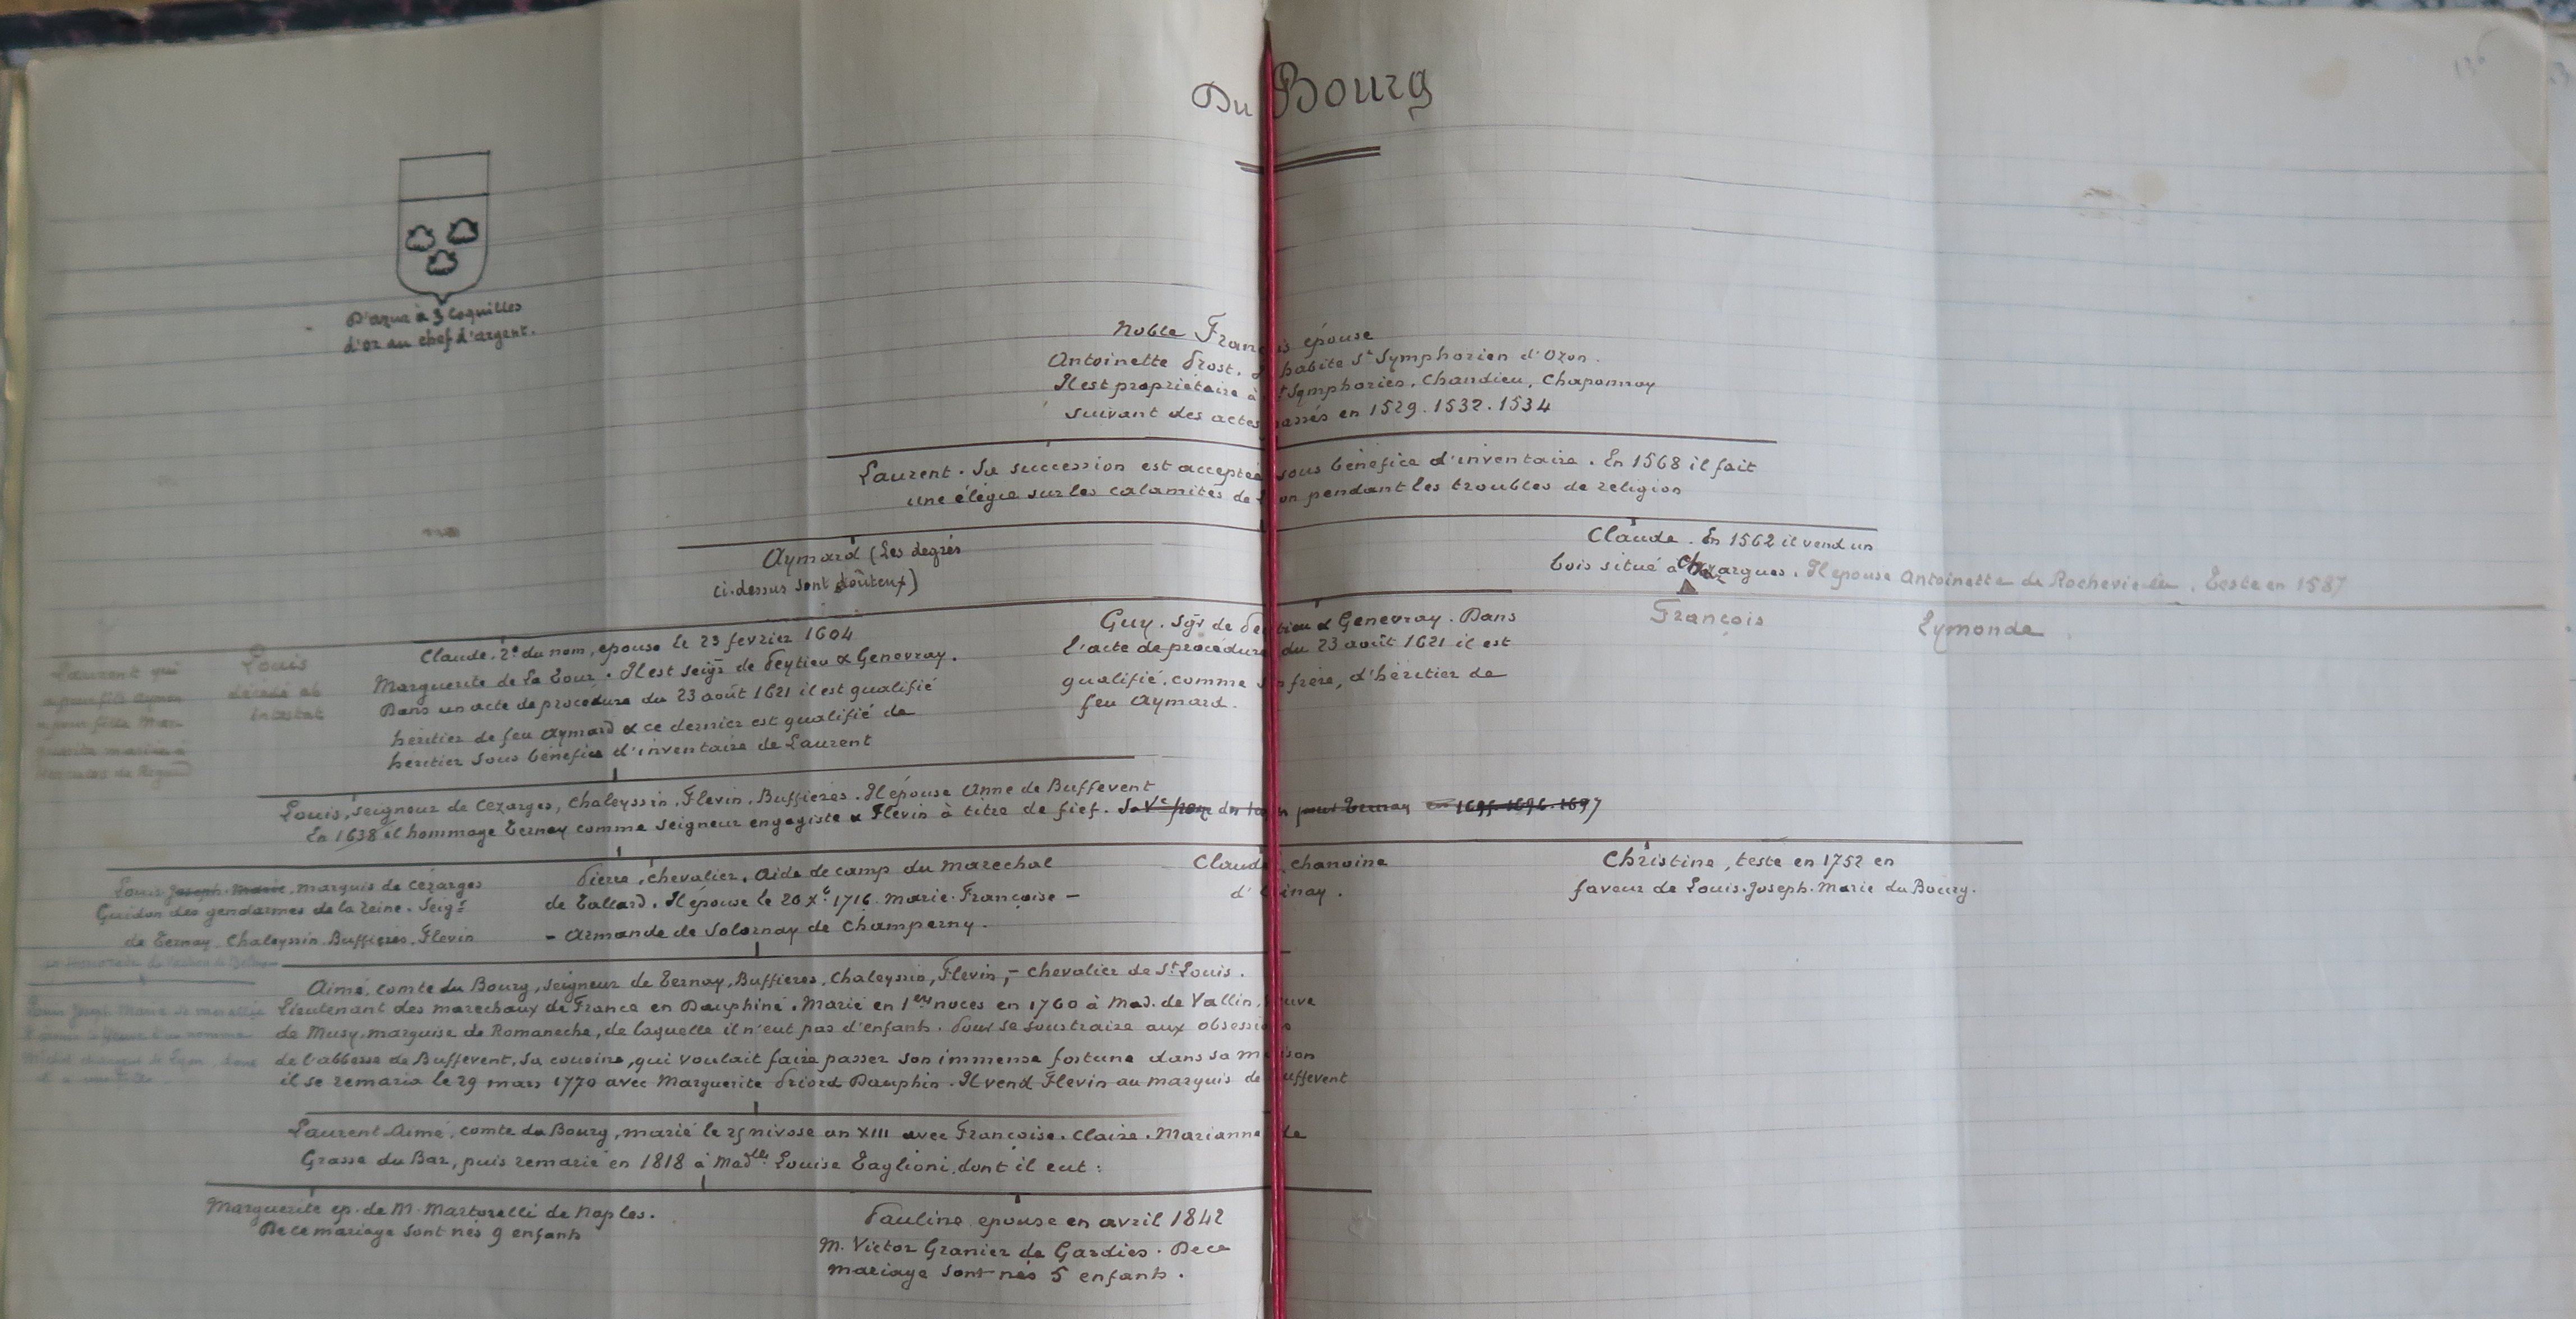 Du Bourg
D'azur à 3 coquilles
d'or au chef d'argent.
Noble François épouse
Antoinette Prost. habite St Symphorien d'Ozon.
Il est propriétaire à St Symphorien, Chandieu, Chaponnay
suivant des actes passés en 1529. 1532. 1534
Laurent. Sa succession est acceptée sous bénéfice d'inventaire. En 1568 il fait
une élégie sur les calamités de Lyon pendant les troubles de religion
Aymard (Les degrés
ci-dessus sont douteux)
Claude. En 1562 il vend un
bois situé à Chezargues. Il épouse Antoinette de Rochevieille. Teste en 1587
Laurent qui
a pour fils Aymar
a pour fille Mar-
guerite mariée à
Louis
décédé ab
intestat
Claude, 2e du nom, épouse le 23 fevrier 1604
Marguerite de La Tour. Il est seigr de Peytieu & Genevray.
Dans un acte de procedure du 23 août 1621 il est qualifié
héritier de feu Aymard & ce dernier est qualifié de
héritier sous bénéfice d'inventaire de Laurent
Guy. Sgr de Peytieu & Genevray. Dans
l'acte de procedure du 23 août 1621 il est
qualifié, comme son frère, d'héritier de
feu Aymard.
François
Lymonde
Louis, seigneur de Cezarges, Chaleyssin, Flevin, Buffieres. Il épouse Anne de Buffevent
En 1638 il hommage Ternay comme seigneur engagiste & Flevin à titre de fief. Sa Ve pour Ternay en 1695. 1696. 1697
Louis Joseph Marie, marquis de Cézarges
Guidon des gendarmes de la reine. Seigr
de Ternay. Chaleyssin. Buffieres. Flevin
Pierre, chevalier, Aide de camp du marechal
de Tallard. Il épouse le 20 Xbre 1716 Marie-Françoise-
- Armande de Solornay de Champerny.
Claude, chanoine
d'Ainay.
Christine, teste en 1752 en
faveur de Louis-Joseph-Marie du Bourg.
Aimé, comte du Bourg, seigneur de Ternay, Buffieres, Chaleyssin, Flevin, - Chevalier de St Louis.
Lieutenant des marechaux de France en Dauphiné. Marié en 1ères noces en 1760 à Mad. de Vallin, veuve
de Musy, marquise de Romaneche, de laquelle il n'eut pas d'enfants. Pour se soustraire aux obsessions
de l'abbesse de Buffevent, sa cousine, qui voulait faire passer son immense fortune dans sa maison
il se remaria le 29 mars 1770 avec Marguerite Priord Dauphin. Il vend Flevin au marquis de Buffevent
Louis Joseph Marie
Laurent Aimé, comte du Bourg, marié le 25 nivose an XIII avec Françoise. Claire. Marianne de
Grasse du Bar, puis remarié en 1818 à Madlle Louise Taglioni, dont il eut :
Marguerite ep. de M. Martorelli de Naples.
De ce mariage sont nés 9 enfants
Pauline épouse en avril 1842
M. Victor Granier de Gardies. De ce
mariage sont nés 5 enfants.